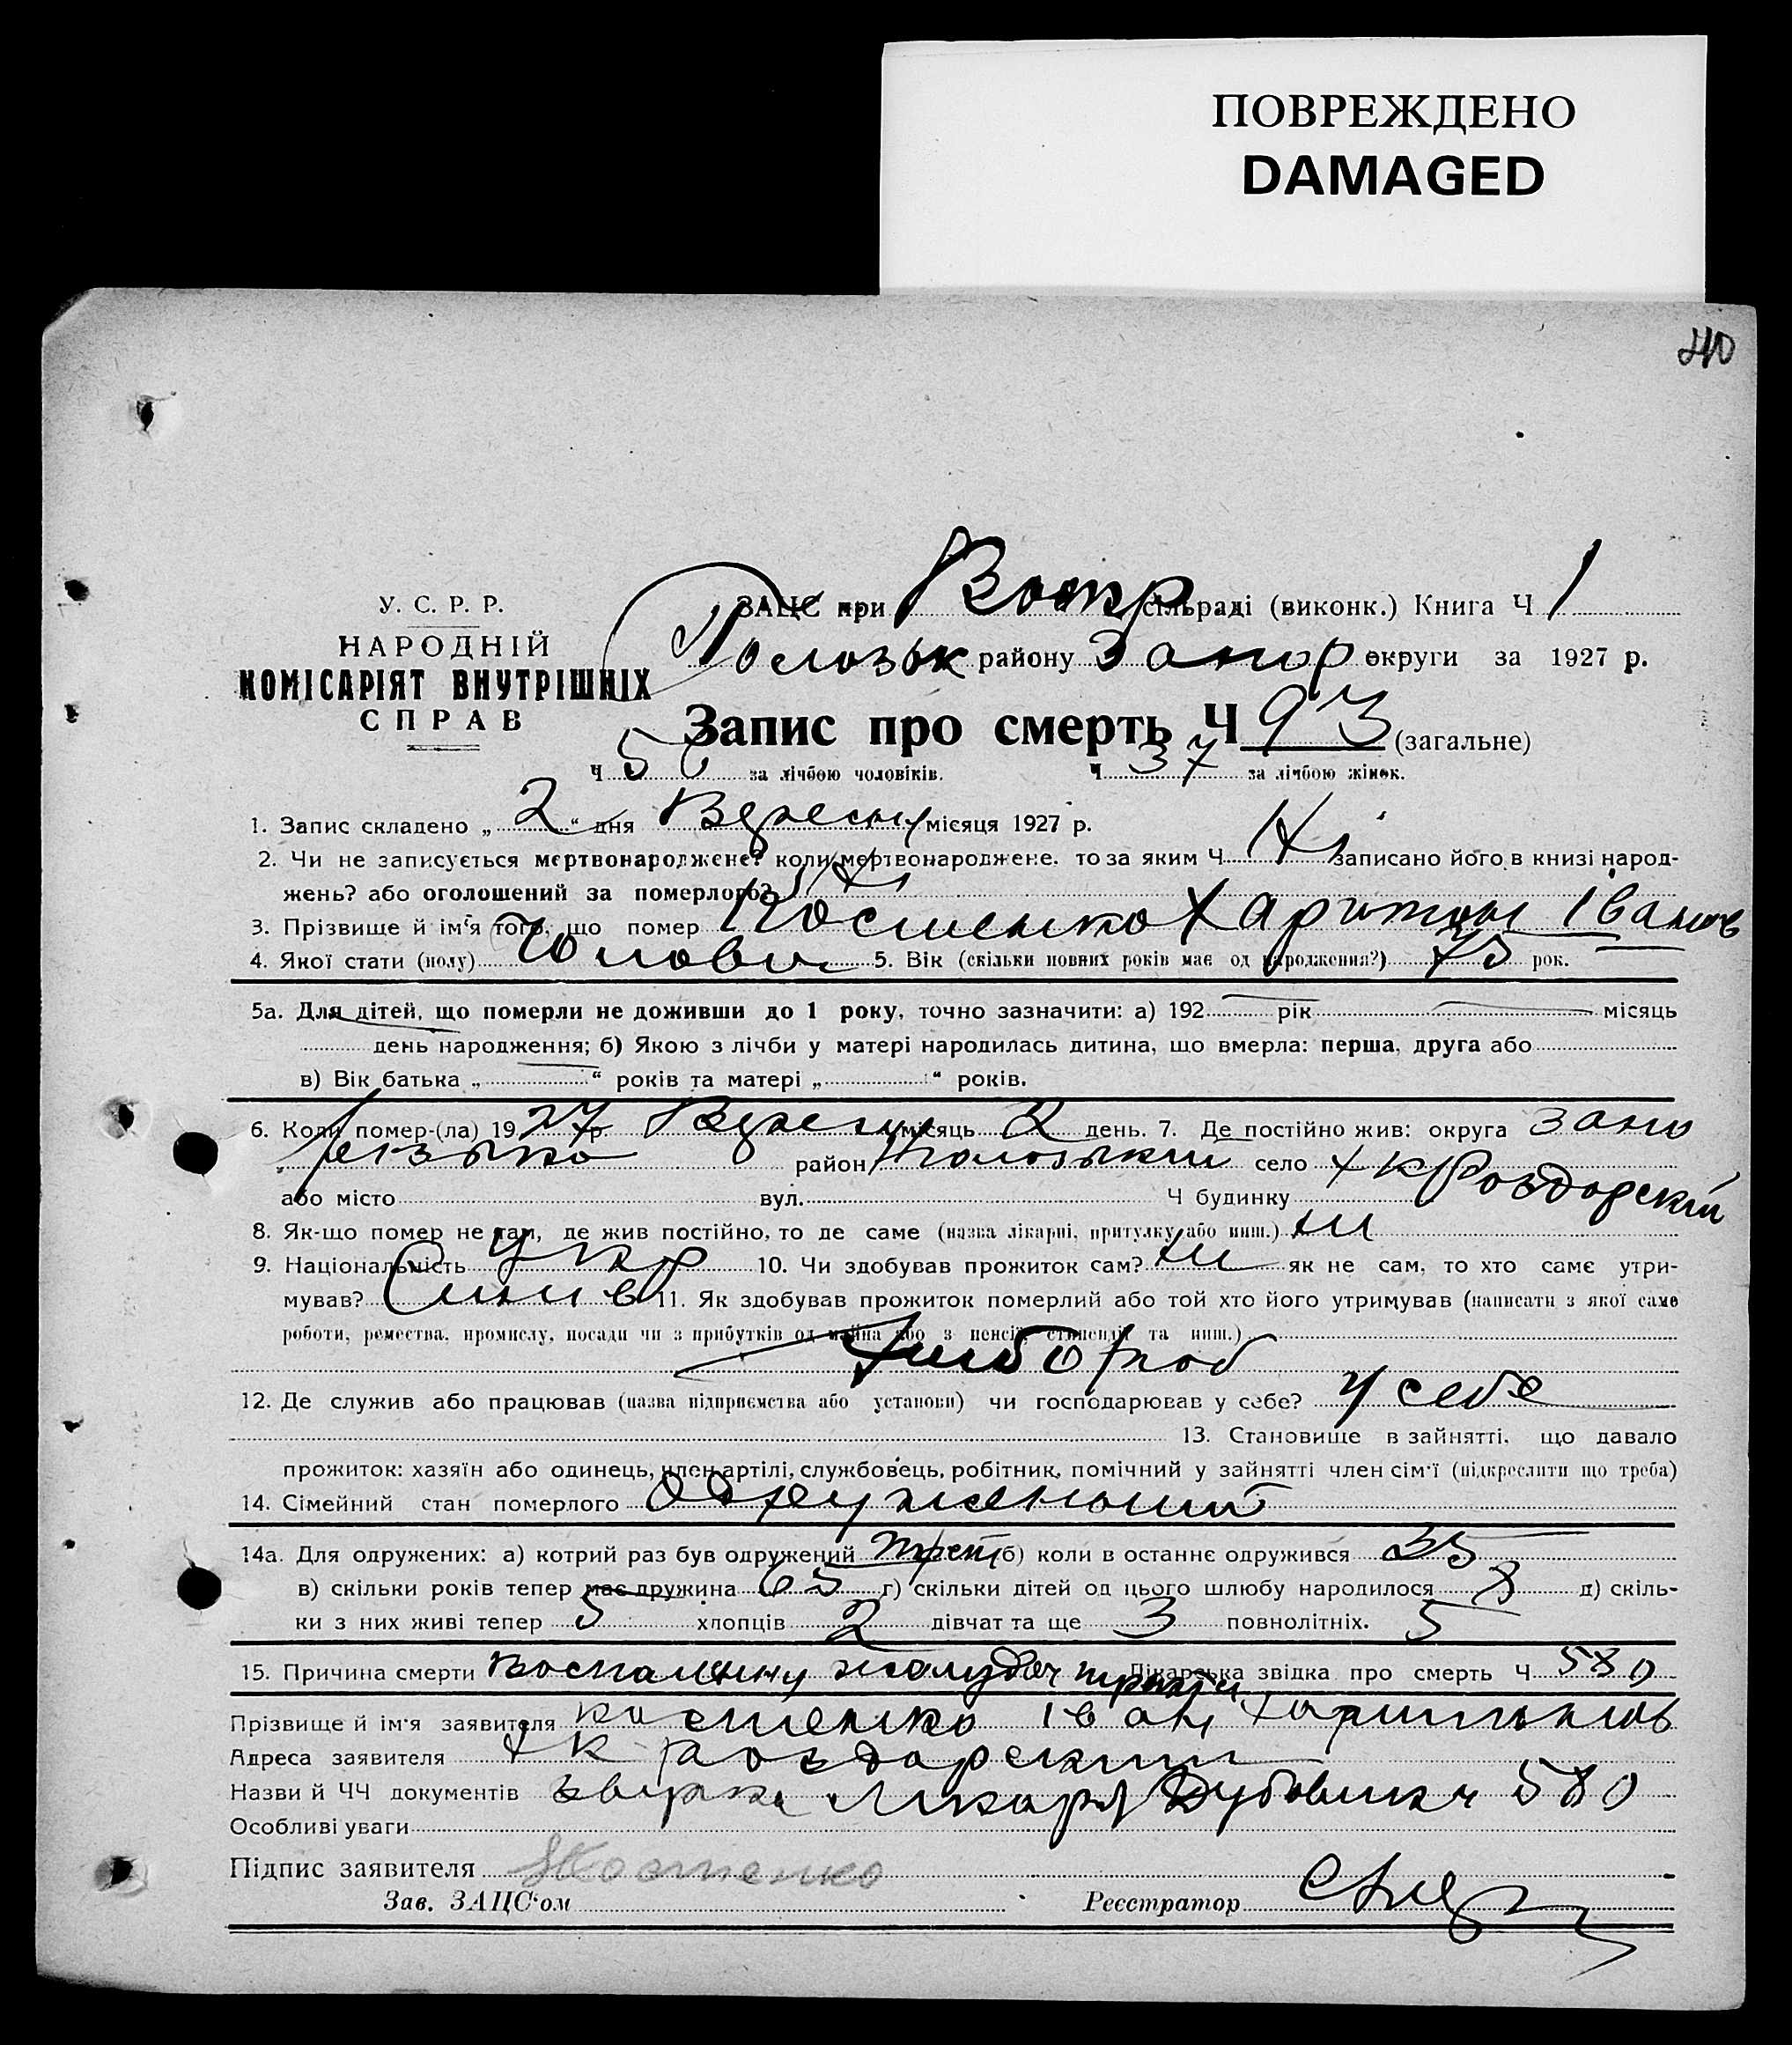 ПОВРЕЖДЕНО
DAMAGED
40
У. С. Р. Р.
НАРОДНІЙ
КОМІСАРІЯТ ВНУТРІШНІХ
СПРАВ
ЗАЦС при сільраді (виконк.) Книга Ч 1
Пологськ району Запор округи за 1927 р.
Запис про смерть Ч 93 (загальне)
Ч 56 за лічбою чоловіків. Ч 37 за лічбою жінок.
1. Запис складено „ 2 “ дня Вересня місяця 1927 р.
2. Чи не записується мертвонароджене? коли мертвонароджене. то за яким Ч Ні записано його в книзі народ-
жень? або оголошений за померлого? Ні
3. Прізвище й ім'я того, що помер Костенко Харитон Іванов
4. Якої стати (полу) Чоловіч 5. Вік (скільки повних років має од народження?) 75 рок.
5а. Для дітей, що померли не доживши до 1 року, точно зазначити: а) 192 рік місяць
день народження; б) Якою з лічби у матері народилась дитина, що вмерла: перша, друга або
в) Вік батька „ “ років та матері „ “ років.
6. Коли помер-(ла) 1927 р. Вересня місяць 2 день. 7. Де постійно жив: округа Запо
різька район Пологький село х к Роздорскій
або місто вул. Ч будинку
8. Як-що помер не там, де жив постійно, то де саме (назва лікарні, притулку або инш.) ні
9. Національність Укр 10. Чи здобував прожиток сам? ні як не сам, то хто саме утри-
мував? Синив 11. Як здобував прожиток померлий або той хто його утримував (написати з якої саме
роботи, ремества, промислу, посади чи з прибутків од майна або з пенсії, стипендії та инш.)
Хлібороб
12. Де служив або працював (назва підприємства або установи) чи господарював у себе? У себе
13. Становище в зайнятті, що давало
прожиток: хазяїн або одинець, член артілі, службовець, робітник, помічний у зайнятті член сім'ї (підкреслити що треба)
14. Сімейний стан померлого
14а. Для одружених: а) котрий раз був одружений б) коли в останнє одружився 35
в) скільки років тепер має дружина 65 г) скільки дітей од цього шлюбу народилося 8 д) скіль-
ки з них живі тепер 5 хлопців 2 дівчат та ще 3 повнолітніх. 5
15. Причина смерти Лікарська звідка про смерть Ч 580
Прізвище й ім'я заявителя Костенко Іван Харитонов
Адреса заявителя х к Роздорский
Назви й ЧЧ документів Лікаря Дубовик ч 580
Особливі уваги
Підпис заявителя Костенко
Зав. ЗАЦС'ом Реєстратор